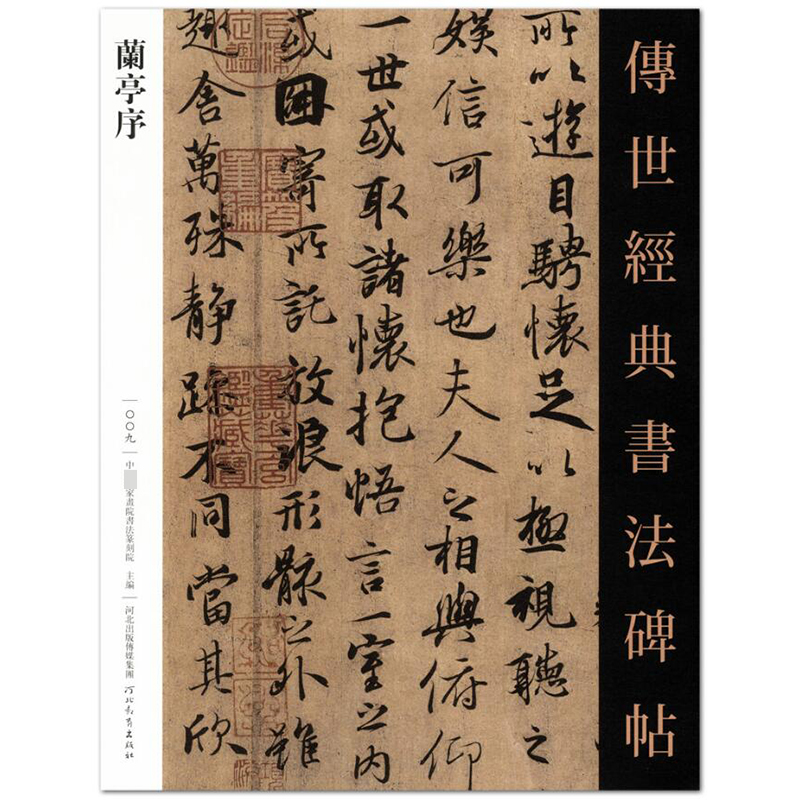 傳世經典書法碑帖
所以遊目騁懷足以極視聽之
娛信可樂也夫人之相與俯仰
一世或取諸懷抱悟言一室之內
或因寄所託放浪形骸之外雖
趣舍萬殊靜躁不同當其欣
蘭亭序
一〇〇九
中
家畫院書法篆刻院 主編
河北出版傳媒集團
河北教育出版社